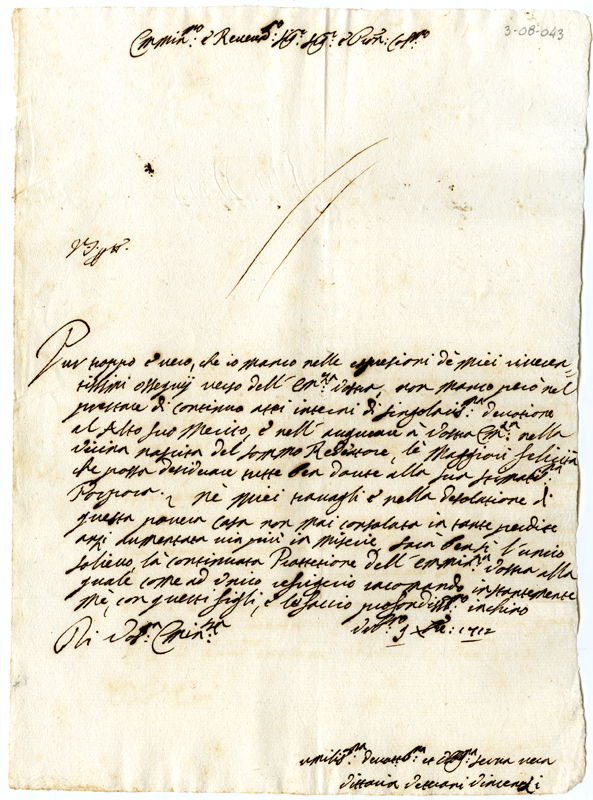 3-08-043
Emmin.mo e Reuerd.mo Sig.r Sig.r e Pron: Col.mo
Pur troppo è vero, che io manco nelle espresioni de miei riueren=
tissimi ossequij verso dell' Em.za Vostra, non manco però nel
prestare di continuo atti interni di singolaris.ma deuotione
al Alto suo Merito, e nell' augurare à Vostra Em.za nella
vicina nascita del sommo Redentore, le Maggiori felicità
che possa desiderare tutte ben douute alla sua stimatis.ma
Porpora. Nè miei trauagli e nella desolatione di
questa pouera casa non mai consolata in tante perdite
anzi aumentata via più in miserie sarà bensi l'unico
solieuo, la continuata Protetione dell' Emmin.za Vostra alla
quale come ad vnico refugierio racomando instantemente
mè, con questi figli, e le faccio profondis.mo inchino
Di Vos.ra Emin.za
9 X.bre: 1712
umilis.ma deuotis.ma et Oblig.ma serua vera
Vittoria Vincenzi